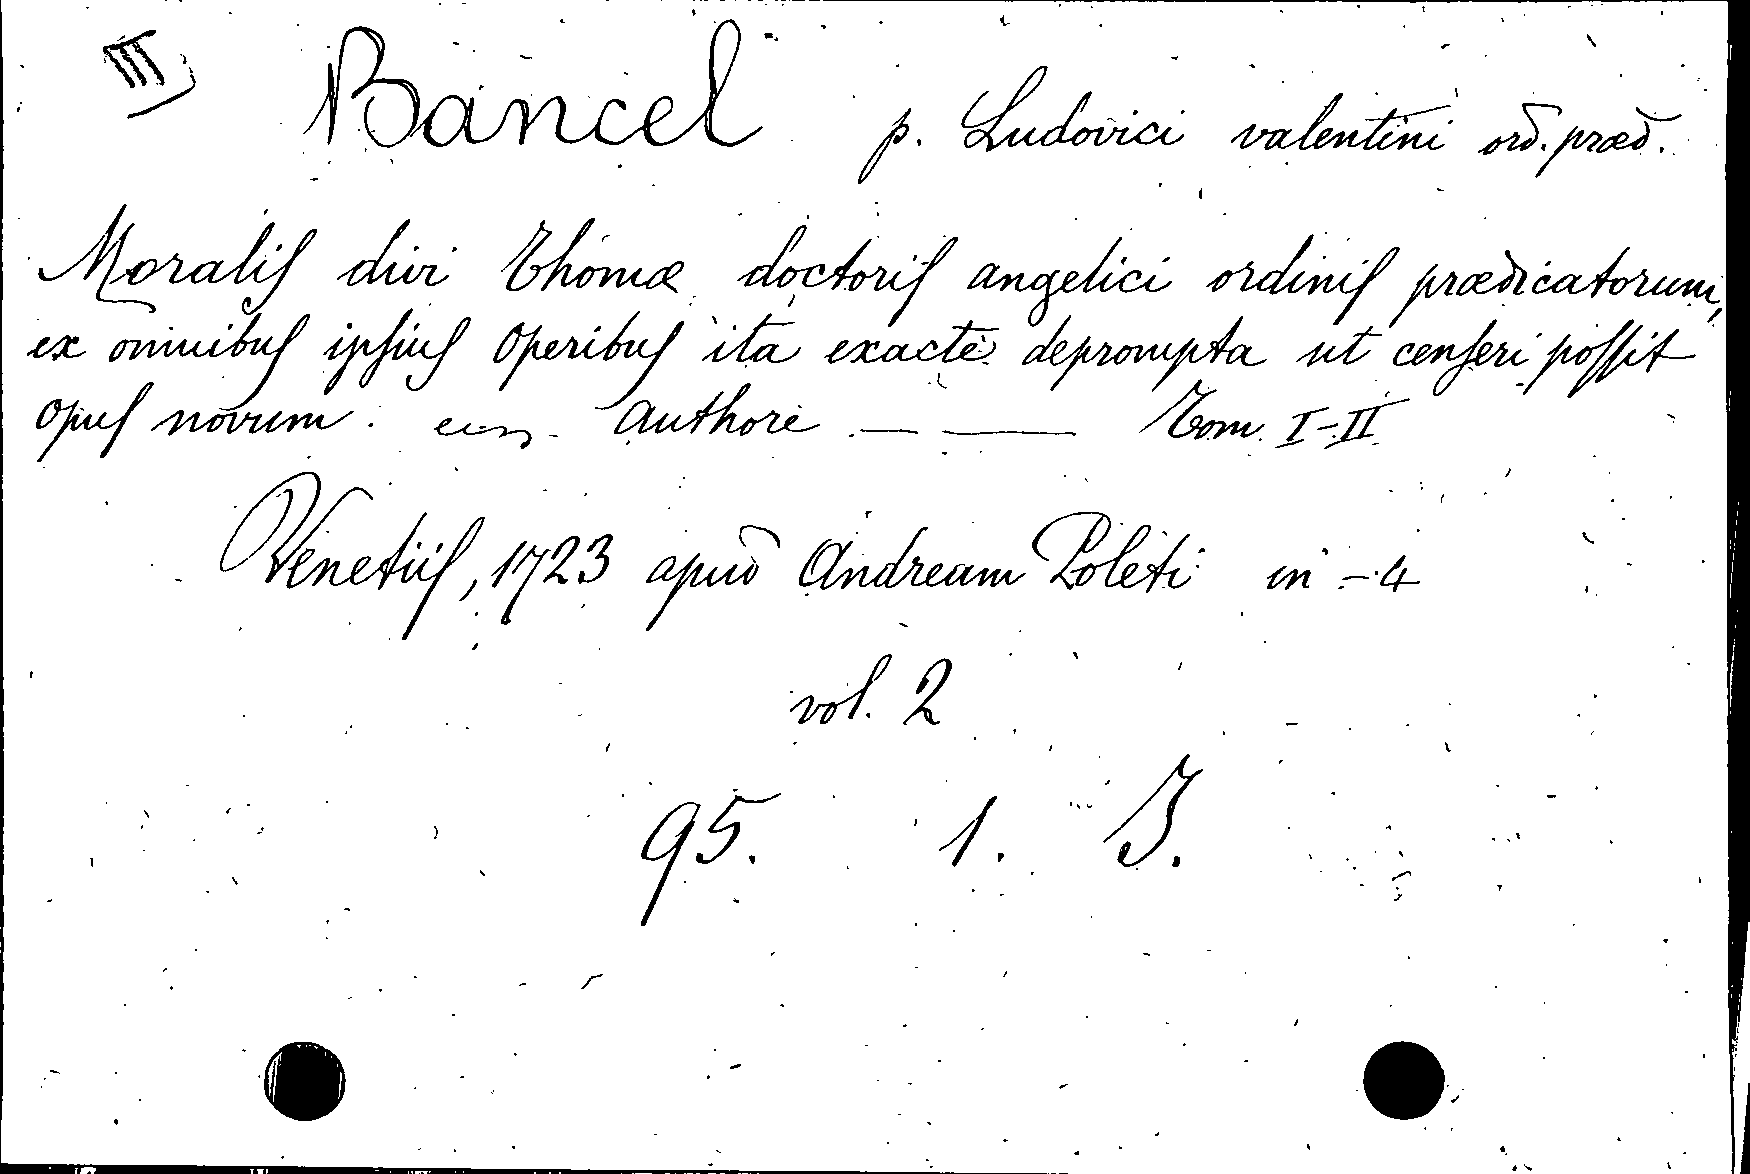 III)
Bancel p. Ludovici valentini ord. præd.
Moralis divi Thomæ doctoris angelici ordinis prædicatorum,
ex omnibus ipsius Operibus ita exacte deprompta ut censeri possit
opus novum. Authore — — Tom. I-II
Venetiis, 1723 apud Andream Poleti in -4
vol. 2
95. 1. J.